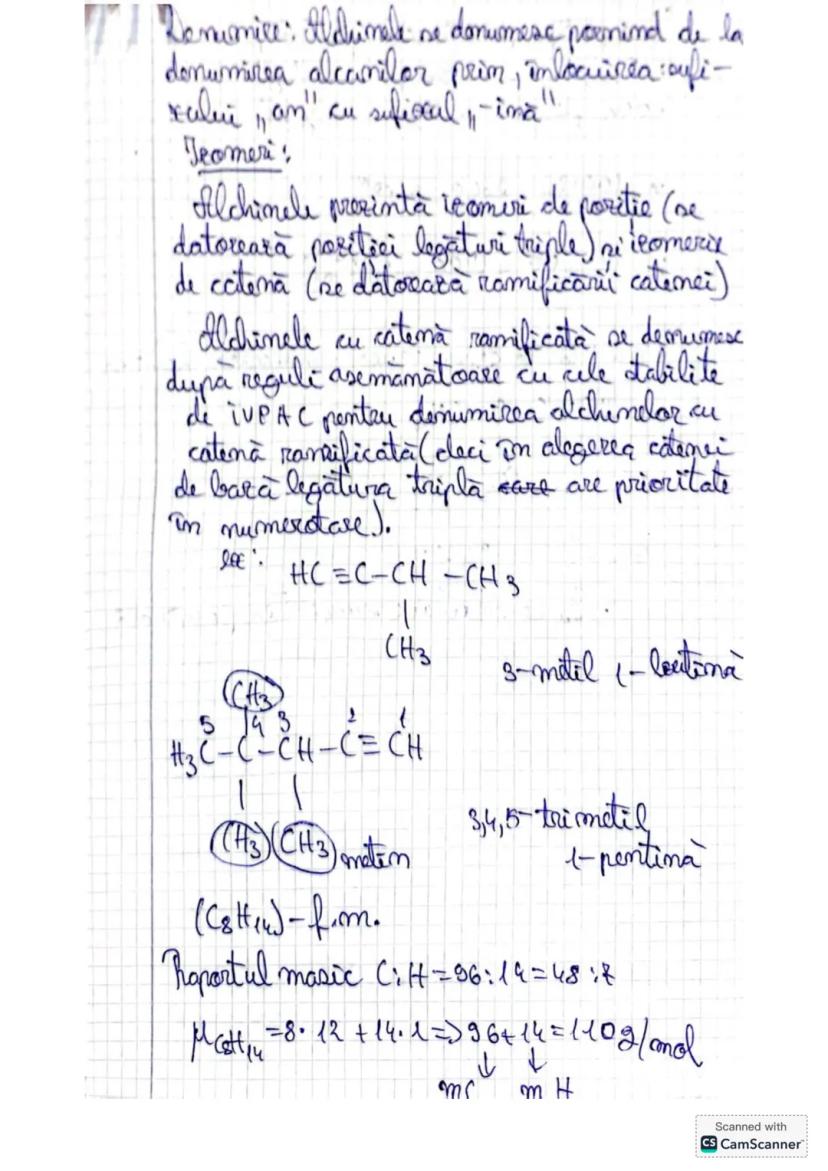 Denumire: Alchinele se denumesc pornind de la
denumirea alcanilor prin, înlocuirea sufi-
xului „an" cu sufixul „-ină"
Izomeri:
Alchinele prezintă izomeri de poziție (se
datorează poziției legături triple) și izomerie
de catenă (se datorează ramificării catenei)
Alchinele cu catenă ramificată se denumesc
după reguli asemănătoare cu cele stabilite
de IUPAC pentru denumirea alchenelor cu
catenă ramificată (deci în alegerea catenei
de bază legătura triplă care are prioritate
în numerotare).
ex:
HC≡C-CH-CH3
|
CH3
3-metil 1-butină
CH3
5 4 3 2 1
H3C-C-CH-C≡CH
| |
CH3 CH3 metin
3,4,5-trimetil
1-pentină
(C8H14)-f.m.
Raportul masic C:H=96:14=48:7
μC8H14=8·12+14·1=>96+14=110g/mol
↓ ↓
mC mH
Scanned with
CS CamScanner